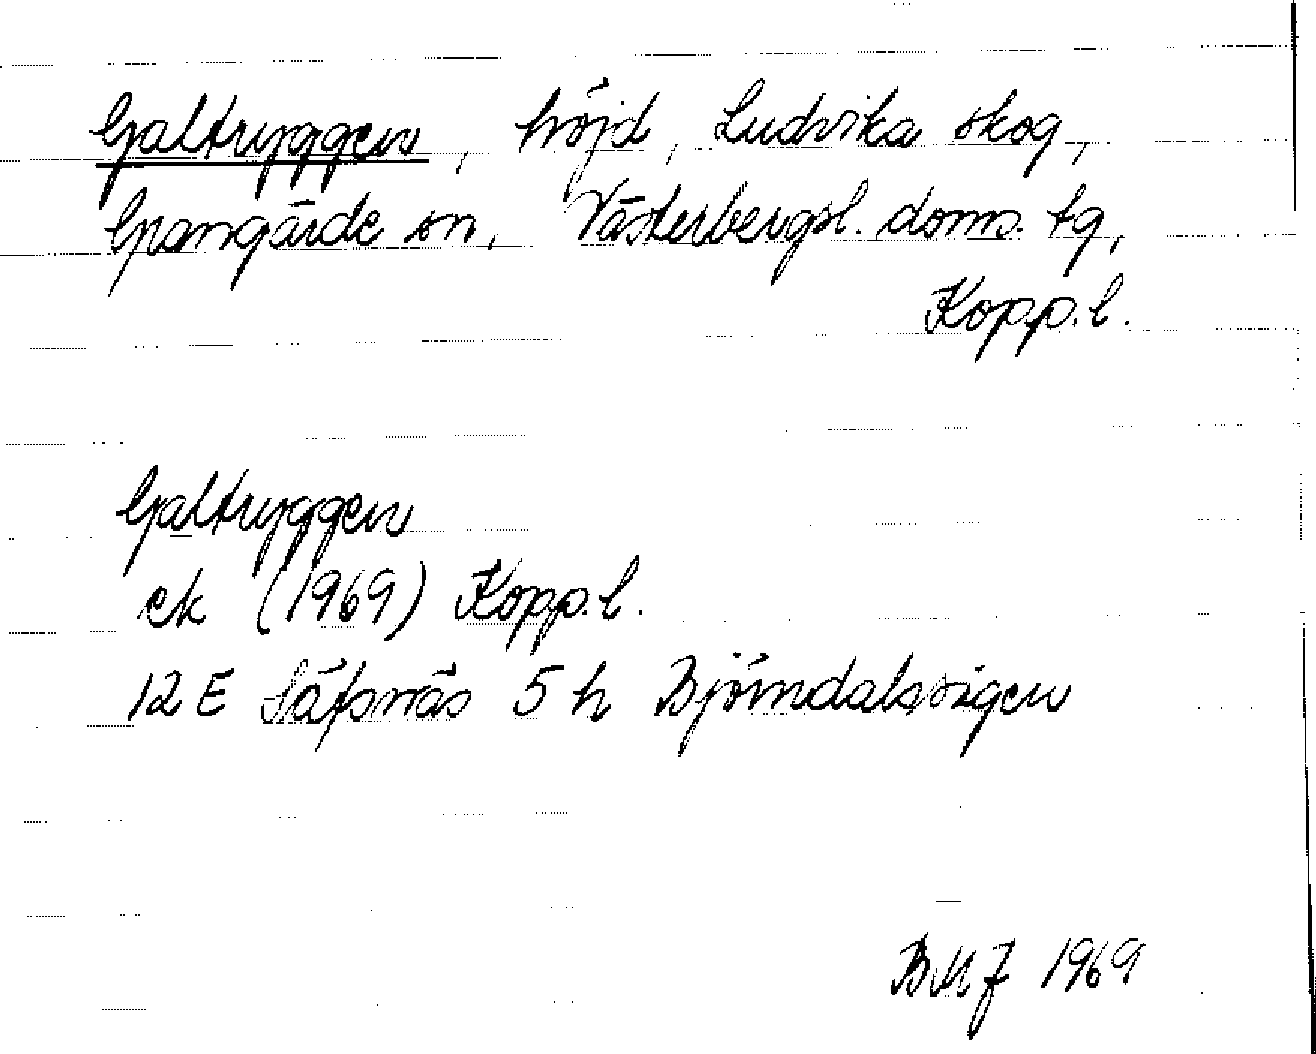 Galtryggen, höjd, Ludvika skog,
Grangärde sn, Västerbergsl. doms. tg,
Kopp. l.
Galtryggen
ek (1969) Kopp. l.
12 E Säfsnäs 5 h Björndalsvägen
BMJ 1969